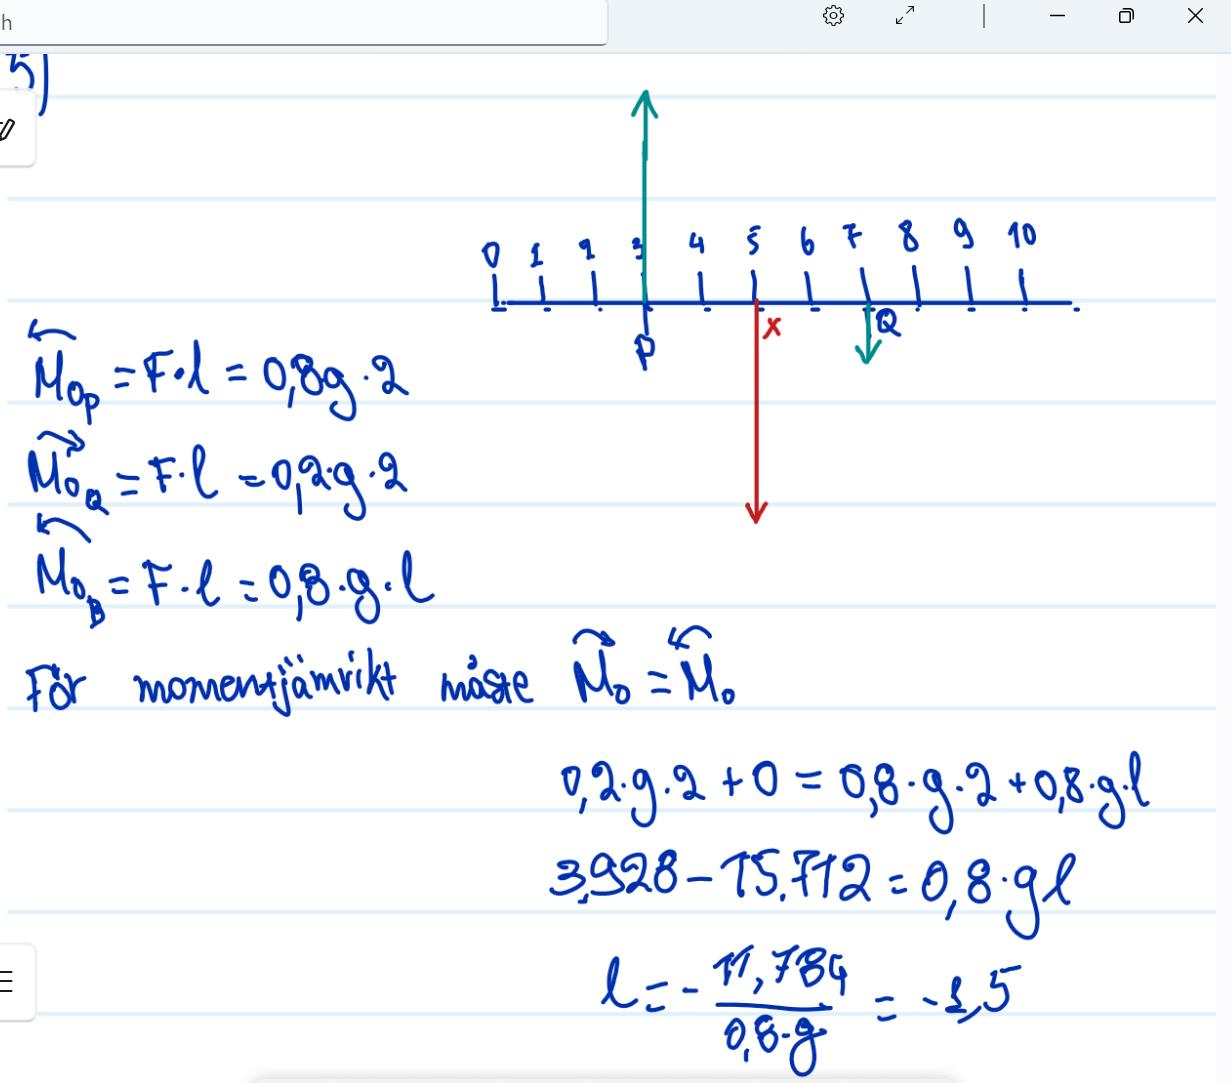 h
5)
0 1 2 3 4 5 6 7 8 9 10
P X Q
M₀ₚ = F·l = 0,8g·2
M₀Q = F·l = 0,2·g·2
M₀B = F·l = 0,8·g·l
För momentjämvikt måste M₀ = M₀
0,2·g·2 + 0 = 0,8·g·2 + 0,8·g·l
3,928 – 15.712 = 0,8·gl
l = - 11,784 / 0,8·g = -1,5